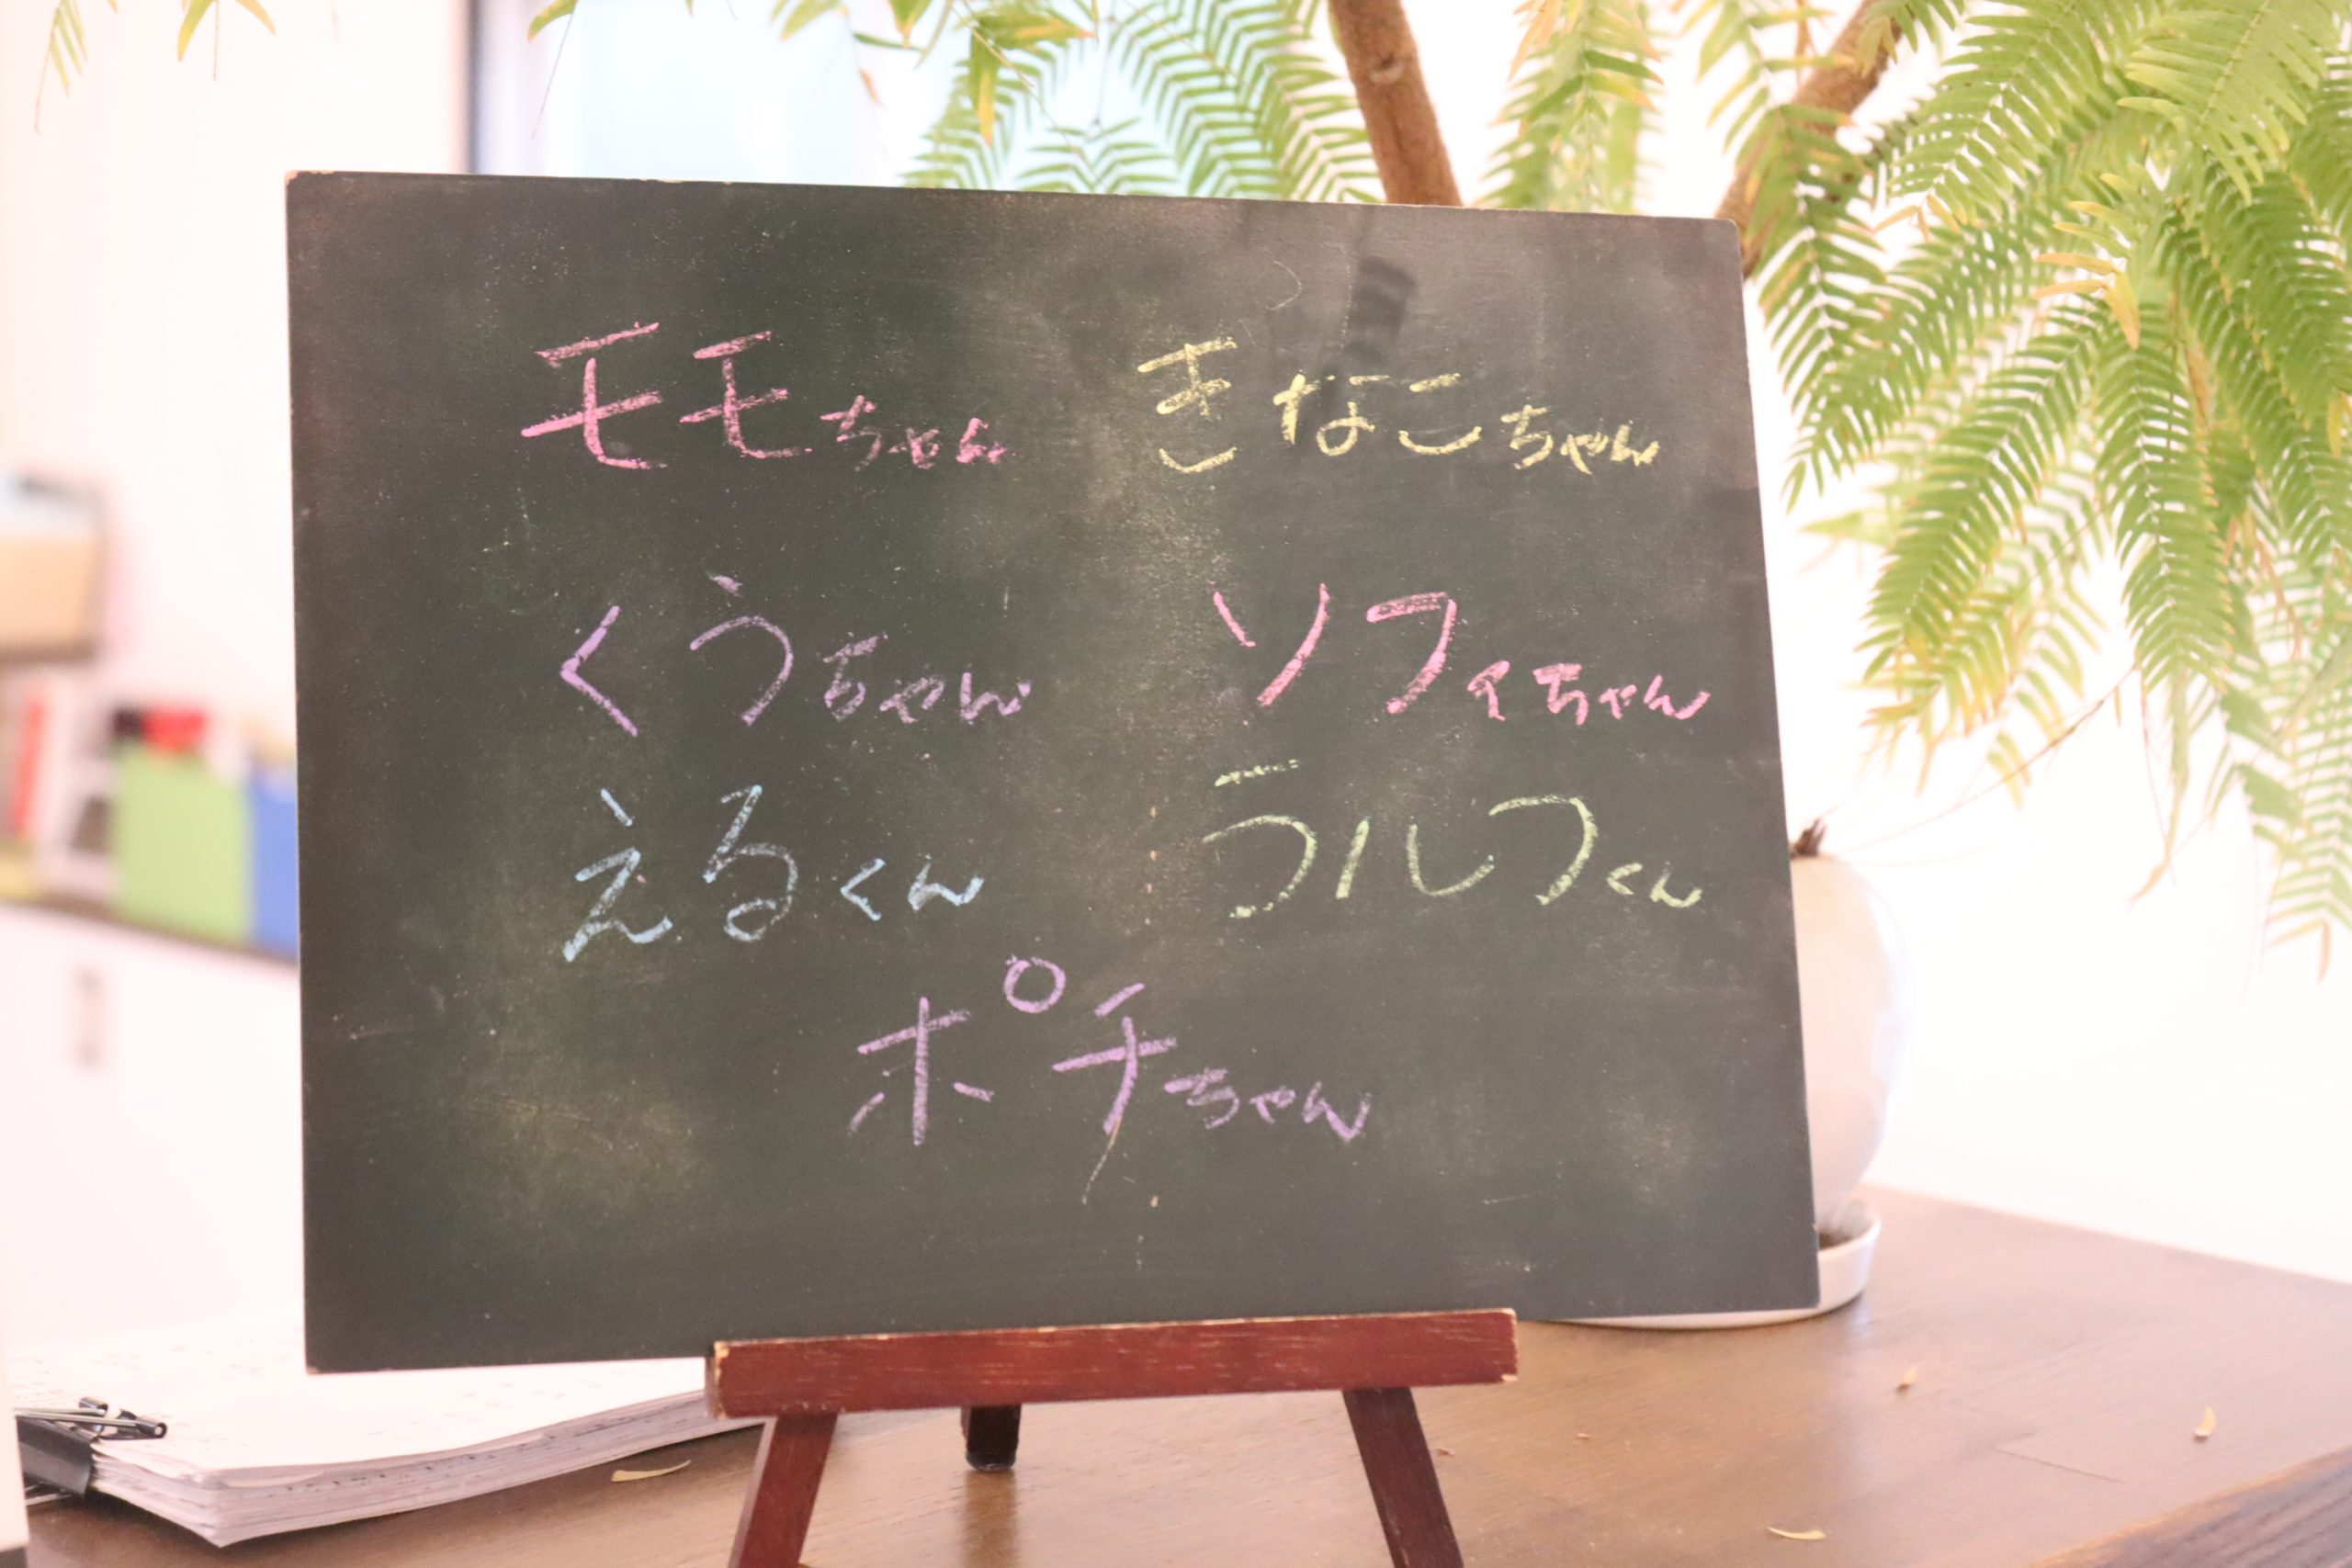 モモちゃん きなこちゃん
くうちゃん ソフィちゃん
えるくん ラルフくん
ポチちゃん